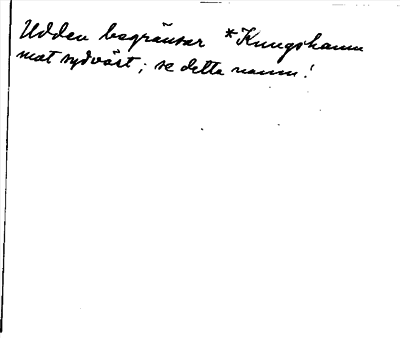 Udden begränsar *Kungshamn
mot sydväst; se detta namn!